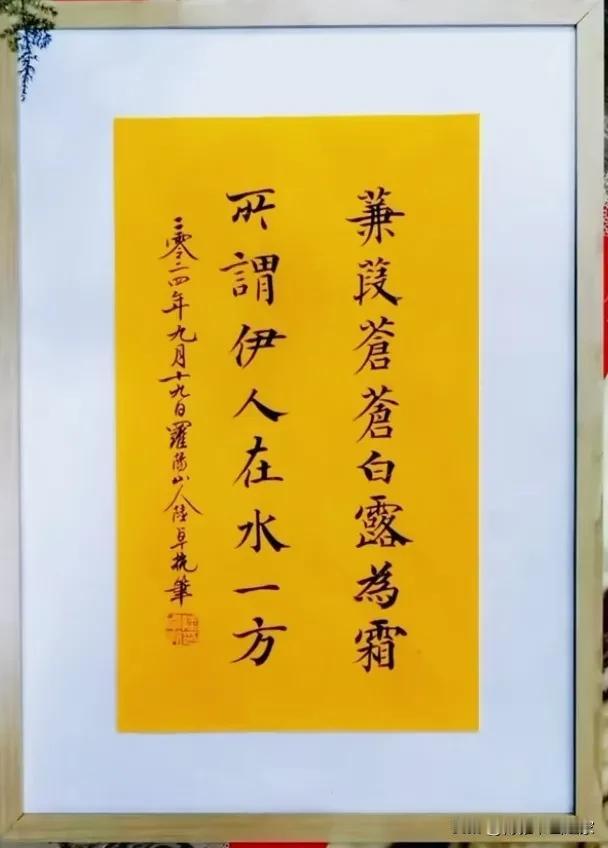 蒹葭蒼蒼白露為霜
所謂伊人在水一方
二零二四年九月十九日羅陽山人陸卓梡筆